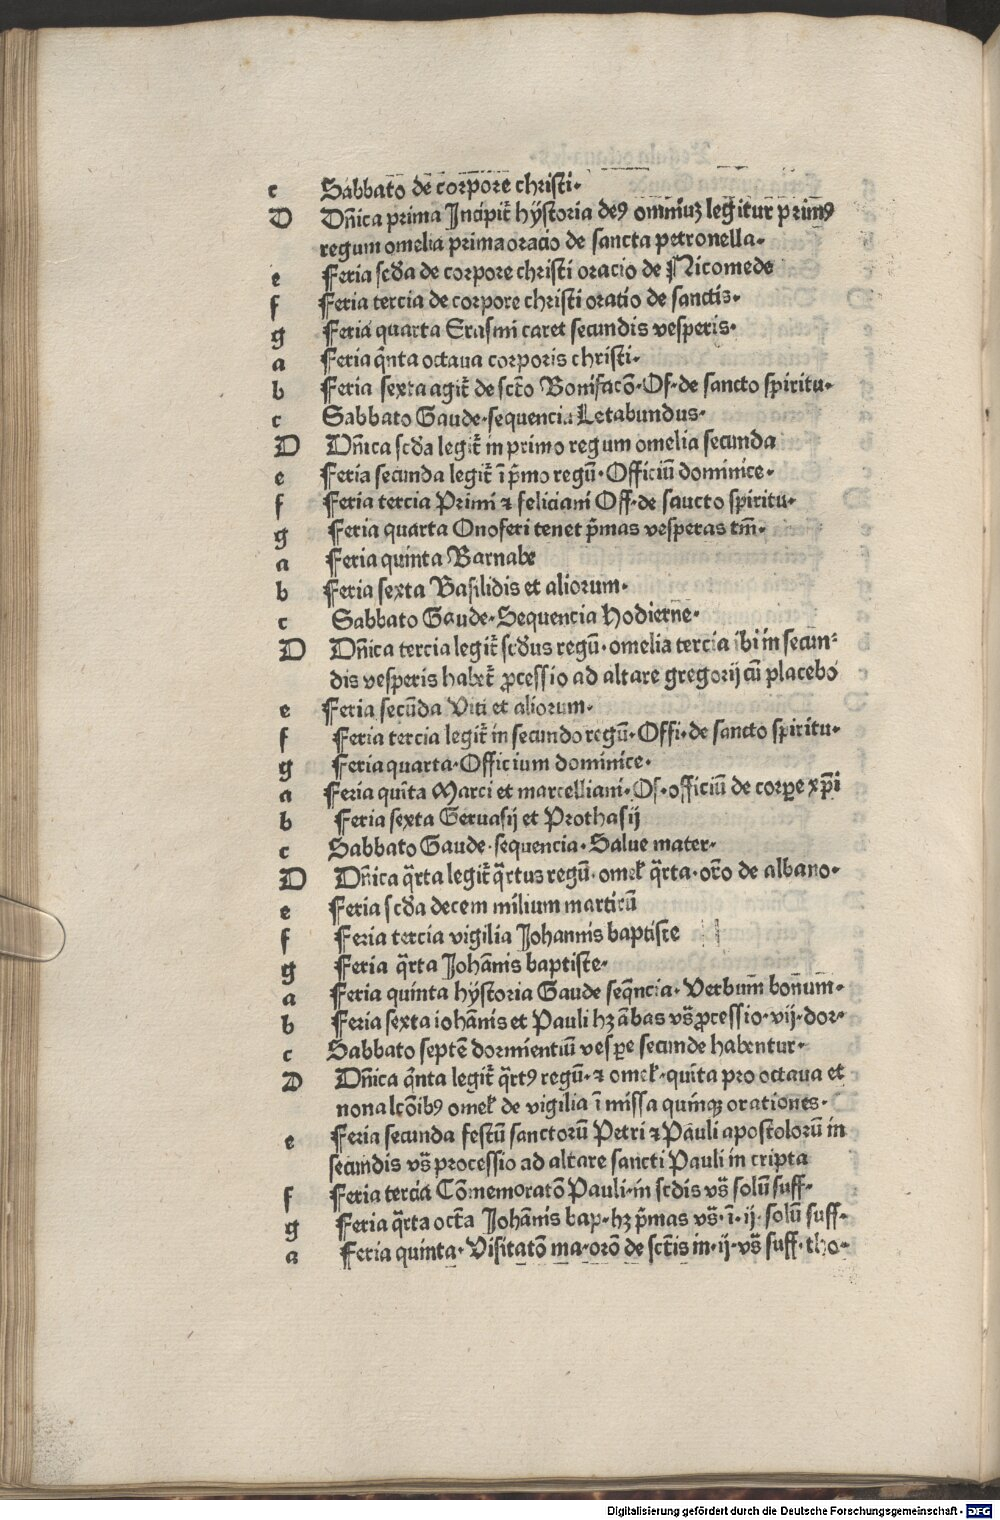 c Sabbato de corpore christi·
D Dn̄ica prima Incipit᷑ hystoria deꝰ omniuꝫ legitur primꝰ
regum omelia prima oracio de sancta petronella·
e Feria scd̄a de corpore christi oracio de Nicomede
f Feria tercia de corpore christi oratio de sanctis·
g Feria quarta Erasmi caret secundis vesperis·
a Feria qn̄ta octaua corporis christi·
b Feria sexta agit᷑ de sct̄o Bonifacō·Of·de sancto spiritu·
c Sabbato Gaude·sequencia Letabundus·
D Dn̄ica scd̄a legit᷑ in primo regum omelia secunda
e Feria secunda legit᷑ ī p̄mo regū·Officiū dominice·
f Feria tercia Primi ⁊ feliciani Off·de saucto spiritu·
g Feria quarta Onoferi tenet p̄mas vesperas tm̄·
a Feria quinta Barnabe
b Feria sexta Basilidis et aliorum·
c Sabbato Gaude·Sequencia Hodierne·
D Dn̄ica tercia legit᷑ scd̄us regū·omelia tercia ibi in secun⸗
dis vesperis habet᷑ ꝓcessio ad altare gregorij cū placebo
e Feria secūda Viti et aliorum·
f Feria tercia legit᷑ in secundo regū·Offi·de sancto spiritu·
g Feria quarta·Officium dominice·
a Feria quīta Marci et marcelliani·Of·officiū de corꝑe xp̄i
b Feria sexta Geruasij et Prothasij
c Sabbato Gaude·sequencia·Salue mater·
D Dn̄ica q̄rta legit᷑ q̄rtus regū·omel̓ q̄rta·orō de albano·
e Feria scd̄a decem milium martirū
f Feria tercia vigilia Johannis baptiste
g Feria q̄rta Johānis baptiste·
a Feria quinta hystoria Gaude seqn̄cia·Verbum bonum·
b Feria sexta iohānis et Pauli hꝫ ābas vs̄ ꝓcessio·vij·dor·
c Sabbato septē dormientiū vesꝑe secunde habentur·
D Dn̄ica qn̄ta legit᷑ q̄rtꝰ regū·⁊ omel̓·quīta pro octaua et
nona lcōibꝰ omel̓ de vigilia ī missa quinqꝫ orationes·
e Feria secunda festū sanctorū Petri ⁊ Pauli apostolorū in
secundis vs̄ processio ad altare sancti Pauli in cripta
f Feria tercia Cōmemoratō Pauli·in scd̄is vs̄ solū suff·
g Feria q̄rta oct̄a Johānis bap·hꝫ p̄mas vs̄·ī·ij·solū suff·
a Feria quinta·Visitatō ma·orō de sct̄is in·ij·vs̄ suff·tho·
Digitalisierung gefördert durch die Deutsche Forschungsgemeinschaft - DFG